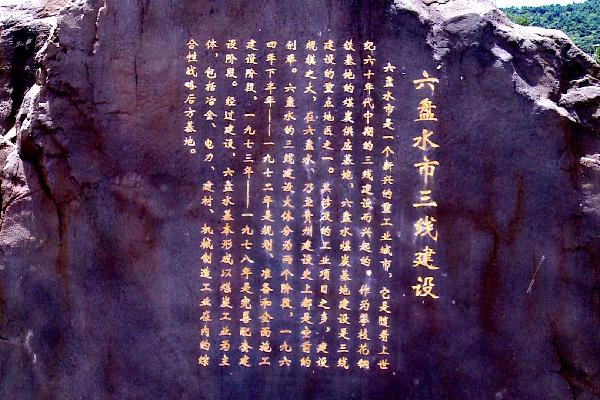 六盘水市三线建设
六盘水市是一个新兴的重工业城市，它是随着上世
纪六十年代中期的三线建设而兴起的。作为攀枝花钢
铁基地的煤炭供应基地，六盘水煤炭基地建设是三线
建设的重点地区之一。其涉及的工业项目之多，建设
规模之大，在六盘水、乃至贵州建设史上都是空前的
创举。六盘水的三线建设大体分为两个阶段，一九六
四年下半年——一九七二年是规划、准备和全面施工
建设阶段，一九七三年——一九七八年是完善配套建
设阶段。经过建设，六盘水基本形成以煤炭工业为主
体，包括冶金、电力、建材、机械制造工业在内的综
合性战略后方基地。